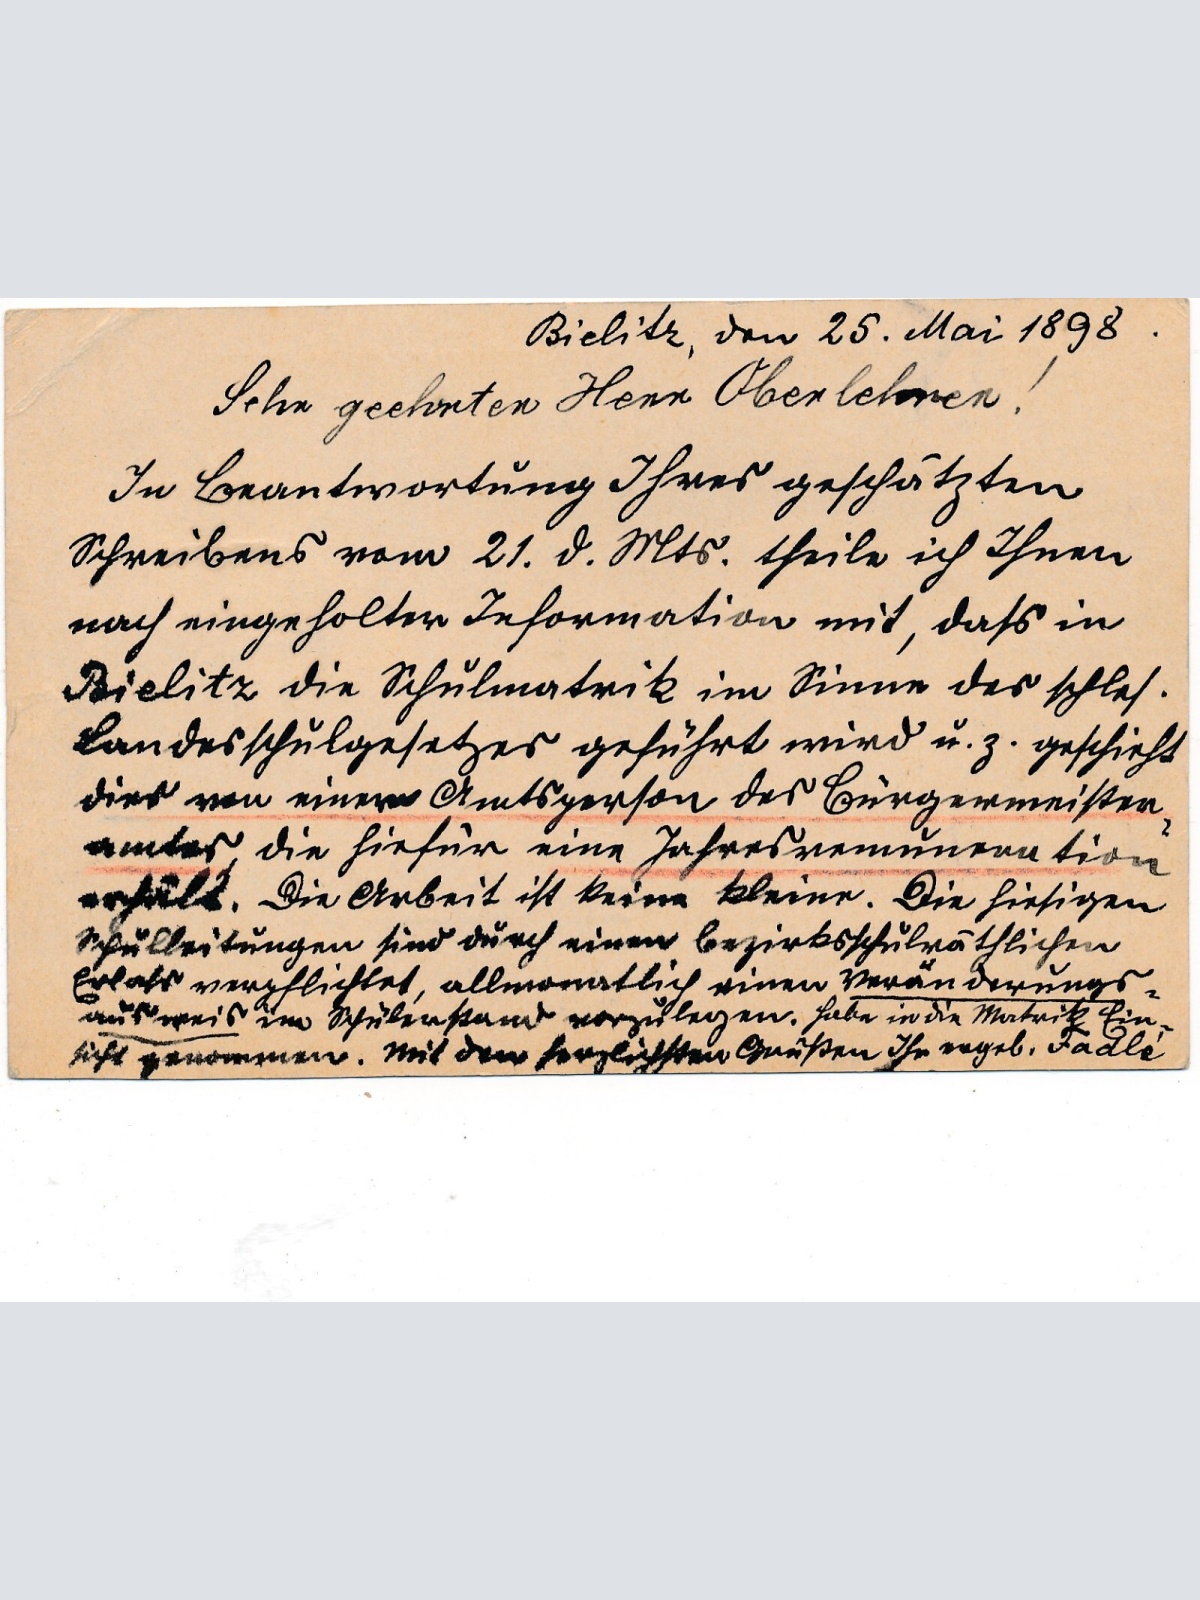 Bielitz, den 25. Mai 1898.
Sehr geehrter Herr Oberlehrer!
In Beantwortung Ihres geschätzten
Schreibens vom 21. d. Mts. theile ich Ihnen
nach eingeholter Information mit, dass in
Bielitz die Schulmatrik im Sinne des schles.
Landesschulgesetzes geführt wird u. z. geschieht
dies von einer Amtsperson des Bürgermeister-
amtes, die hiefür eine Jahresremuneration
erhält. Die Arbeit ist keine kleine. Die hiesigen
Schulleitungen sind durch einen bezirksschulräthlichen
Erlass verpflichtet, allmonatlich einen Veränderungs-
ausweis im Schülerstand vorzulegen. Habe in die Matrik Ein-
sicht genommen. Mit den herzlichsten Grüßen Ihr ergeb.